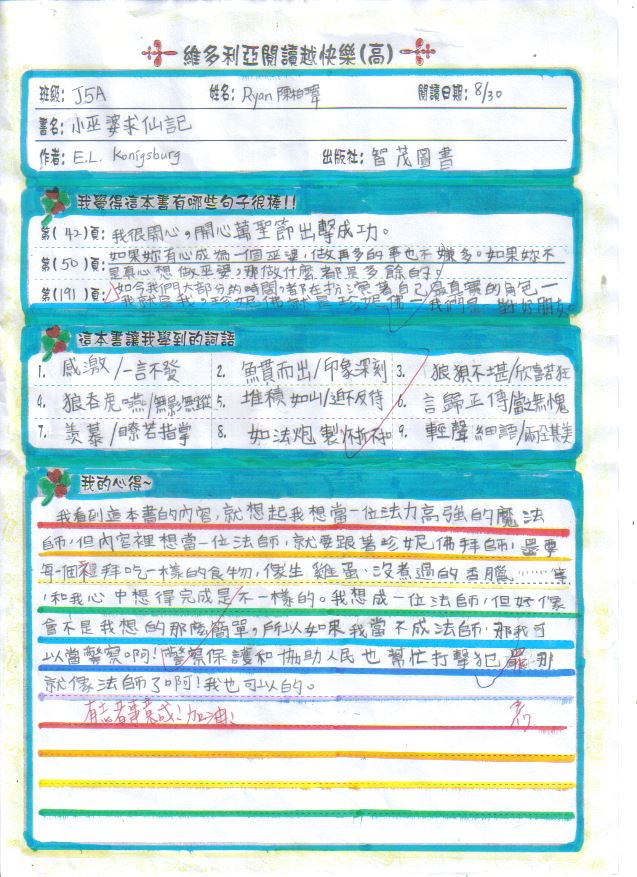 維多利亞閱讀越快樂(高)
班級: J5A 姓名: Ryan 陳柏瑋 閱讀日期: 8/30
書名: 小巫婆求仙記
作者: E.L. Konigsburg 出版社: 智茂圖書
我覺得這本書有哪些句子很棒!!
第(42)頁: 我很開心,開心萬聖節出擊成功。
第(50)頁: 如果妳有心成為一個巫婆,做再多的事也不嫌多。如果妳不
是真心想做巫婆,那做什麼都是多餘的。
第(191)頁: 如今我們大部分的時間,都在扮演著自己最真實的角色—
我就是我,珍妮佛就是珍妮佛—我們是一對好朋友。
這本書讓我學到的詞語
1. 感激/一言不發 2. 魚貫而出/印象深刻 3. 狼狽不堪/欣喜若狂
4. 狼吞虎嚥/無影無蹤 5. 堆積如山/迫不及待 6. 言歸正傳/當之無愧
7. 羨慕/瞭若指掌 8. 如法炮製 9. 輕聲細語/兩全其美
我的心得~
我看到這本書的內容,就想起我想當一位法力高強的魔法
師,但內容裡想當一位法師,就要跟著珍妮佛拜師,還要
每一個禮拜吃一樣的食物,像生雞蛋、沒煮過的香腸……等
,和我心中想得完成是不一樣的。我想成一位法師,但好像
會不是我想的那麼簡單,所以如果我當不成法師,那我可
以當警察啊!警察保護和協助人民也幫忙打擊犯罪,那
就像法師了啊!我也可以的。
有志者事竟成!加油!